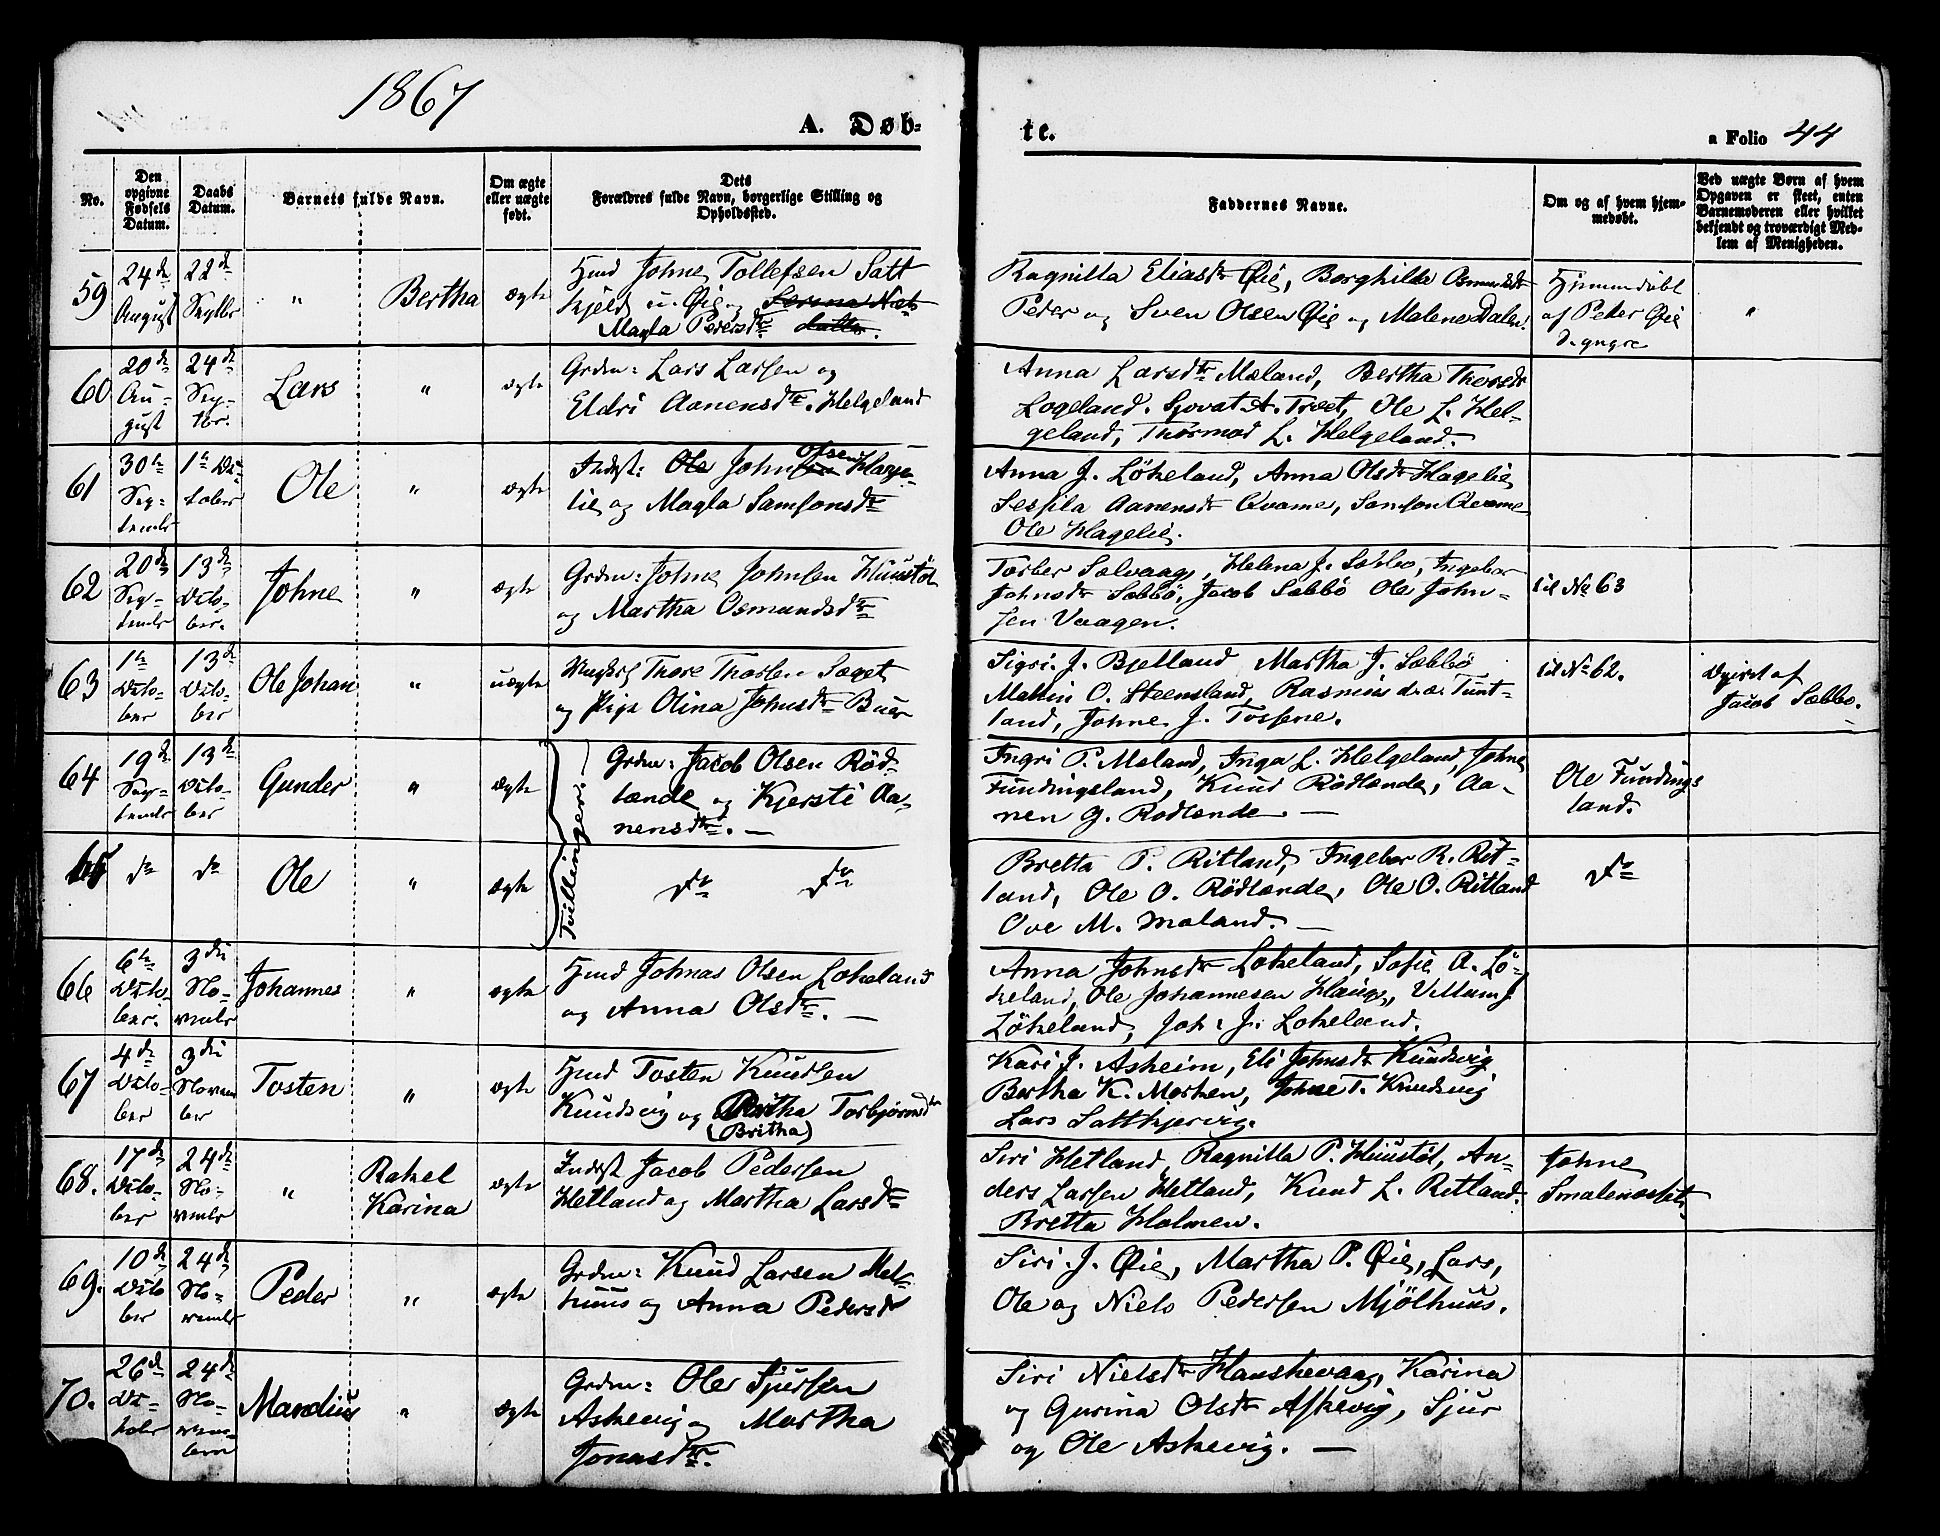 1867
A. Døb-
te.
a Folio 44
No.
Den
opgivne
Fødsels
Datum.
Daabs
Datum.
Barnets fulde Navn.
Om ægte
eller uægte
født.
Dets
Forældres fulde Navn, borgerlige Stilling og
Opholdssted.
Faddernes Navne.
Om og af hvem hjem-
medøbt.
Ved uægte Børn af hvem
Opgaven er skeet, enten
Barnemoderen eller hvilket
bekjendt og troværdigt Med-
lem af Menigheden.
59 24de August 22de Septbr " Bertha ægte
Hmd Johne Tollefsen Salt
kjels u. Øie og Serina Niels
Magla Pedersdtr datter.
Ragnilla Eliasdtr Øie, Borghilde Osmundsdtr
Peder og Sven Olsen Øie og Malene Dalen.
Hjemmedøbt
af Peder Øie
d. yngre
"
60 20de Au-
gust 24de Sep-
tbr. Lars " ægte
Grdm: Lars Larsen og
Eldri Aanensdtr. Helgeland
Anna Larsdtr Mæland, Bertha Thoresdtr
Logeland. Sjovat A. Træet, Ole L. Hel-
geland, Thormod L. Helgeland.
61 30te Sep-
tembr 1te Oc-
tober Ole " ægte
Indest: Ole John Olsen Hage-
lie og Magla Samsonsdtr
Anna J. Lökeland, Anna Olsdtr Hagelie
Sessila Aanensdtr Qvame, Samson Qvame
Ole Hagelie.
62 20de Sep-
tembr 13de Octo-
ber. Johne " ægte
Grdm: Johne Johnsen Huustöl
og Martha Osmundsdtr
Torber Solvaag, Helena J. Sæbbö, Ingebor
Johnsdtr Sæbbö, Jacob Sæbbö Ole John-
sen Vaagen.
id No 63
63 1te Octo-
ber 13de Octo-
ber Ole Johan " uægte
Ungkrl Thore Thorsen Sæget
og Pige Olina Johnsdtr Buer
Sigri. J. Bjelland Martha J. Sæbbö
Mallin O. Steensland, Rasmus Tunt-
land, Johne J. Tossene.
id No 62.
Opgivet af
Jacob Sæbbö.
64 19de Sep-
tembr 13de Octo-
ber Gunder " ægte
Tvillinger:
Grdm: Jacob Olsen Röd-
lænde og Kjersti Aa-
nensdtr. —
Ingri P. Mæland, Inga L. Helgeland, Johne
Fundingsland, Knud Rödlænde, Aa-
nen G. Rödlænde. —
Ole Fundings
land.
65 do do Ole " ægte
do do
Bretta P. Ritland, Ingebor R. Rit-
land, Ole O. Rödlænde, Ole O. Ritland
Ove M. Mæland. —
do
66 6te Octo-
ber. 3die No-
vembr Johannes " ægte
Hmd Johnas Olsen Lokeland
og Anna Olsdtr. —
Anna Johnsdtr Lokeland, Sofie A. Lö-
keland, Ole Johannesen Hauge, Villum J.
Lökeland, Joh: J. Lokeland.
67 4de Octo-
ber 3die Novem
ber Tosten " ægte
Hmd Tosten Knudsen
Knudsvig og Britha Torbjørnsdtr
(Britha)
Kari J. Asheim, Eli Johnsdtr Knudsvig
Bertha K. Marken, Johne T. Knudsvig
Lars Saltkjervig.
68. 17de Octo-
ber 24de No-
vembr " Rakel
Karina ægte
Indest Jacob Pedersen
Hetland og Martha Larsdtr
Siri Hetland Ragnilla P. Huustöl, An-
ders Larsen Hetland, Knud L. Ritland.
Bretta Holmen.
Johne
Smalenesset.
69. 10de Octo
ber 24de No-
vembr Peder " ægte
Grdm: Knud Larsen Mel-
huus og Anna Pedersdtr
Siri. J. Øie, Martha P. Øie, Lars,
Ole og Niels Pedersen Mjölhuus.
70. 26de Oc-
tober 24de No-
vem-
bem Mandius " ægte
Grdm: Ole Sjursen
Askevig og Martha
Jonasdtr.
Siri Nielsdtr Hanskevaag, Karina
og Gurina Olsdtr Askevig, Sjur
og Ole Askevig. —